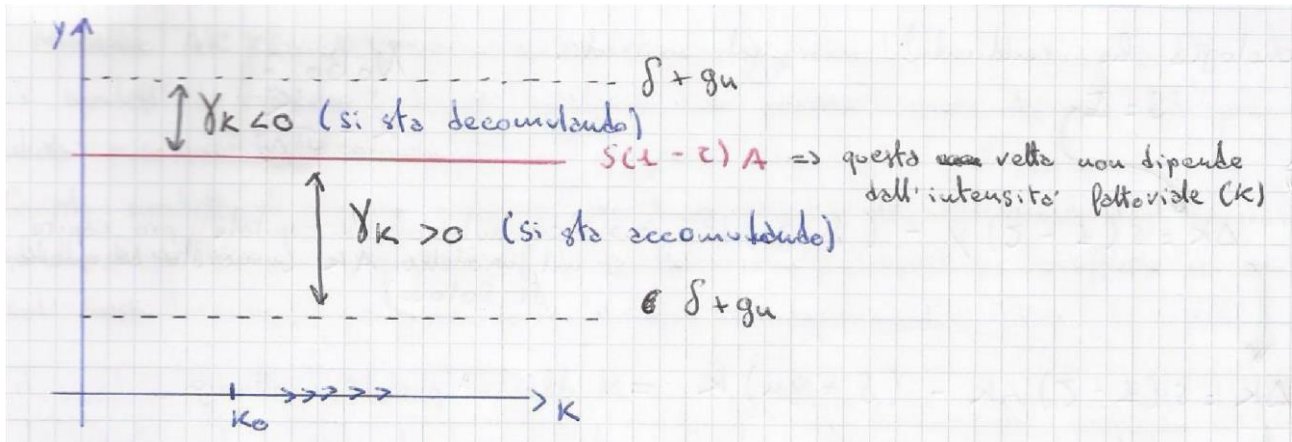 y
δ + gn
γK <0 (si sta decomulando)
S(1 - τ) A => questa volta non dipende
dall'intensita' fattoriale (K)
γK >0 (si sta accomulando)
δ + gn
K0
K